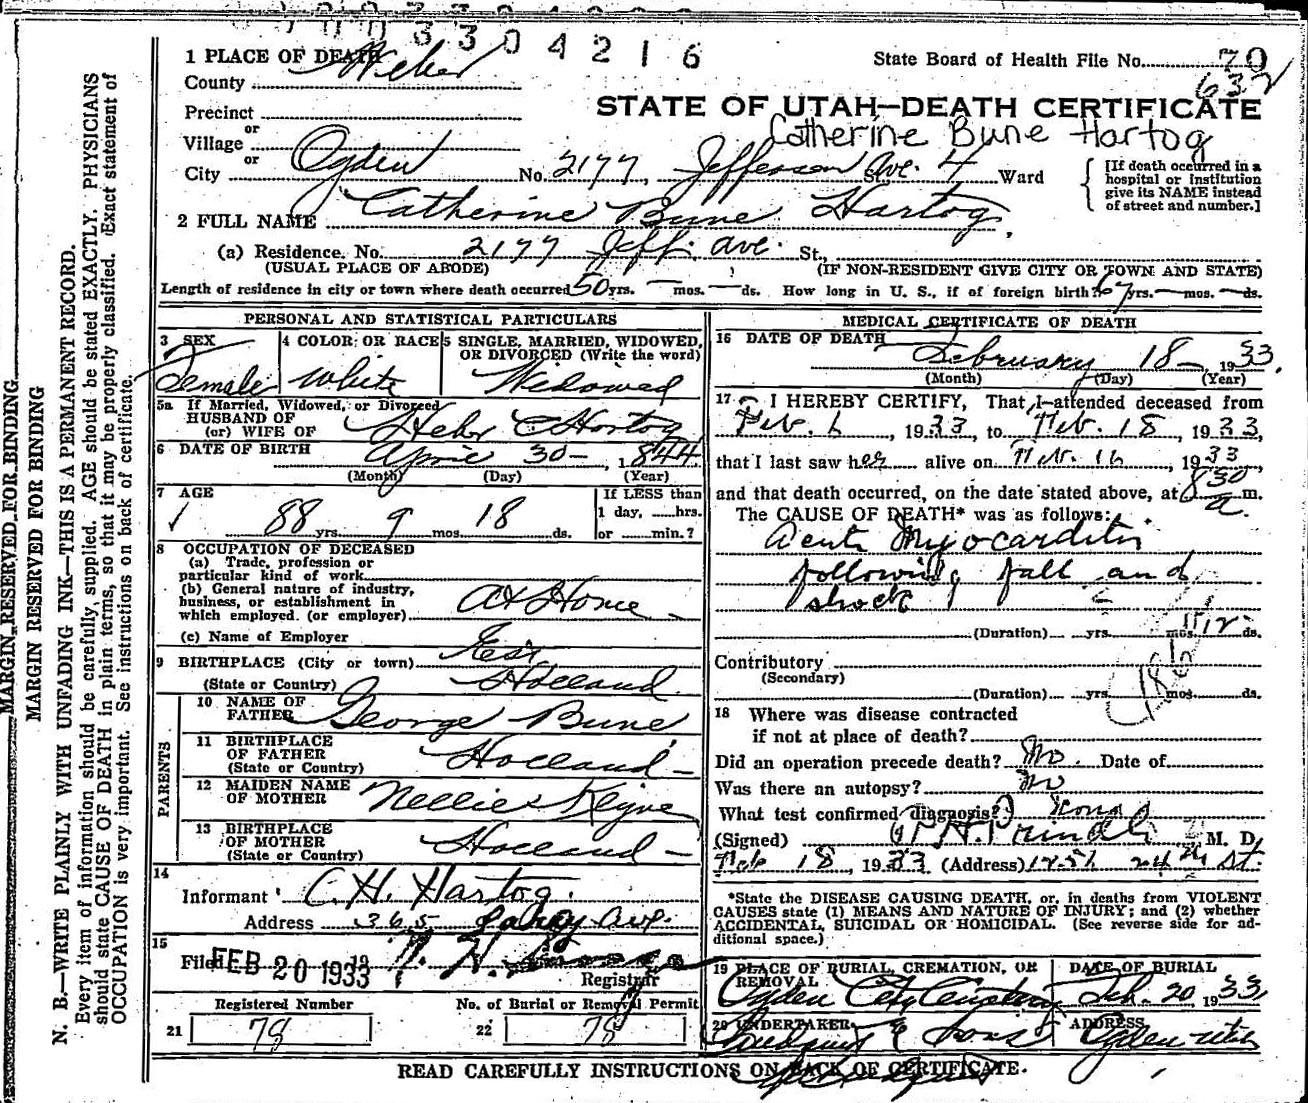 7 0 0 3 3 0 4 2 1 6
1 PLACE OF DEATH
County Weber
State Board of Health File No. 70
632
Precinct
STATE OF UTAH—DEATH CERTIFICATE
or
Village
Catherine Bune Hartog
or
City Ogden No. 2177, Jefferson Ave. St. 4 Ward
[If death occurred in a
hospital or institution
give its NAME instead
of street and number.]
2 FULL NAME Catherine Bune Hartog.
(a) Residence. No. 2177 Jeff. Ave. St.,
(USUAL PLACE OF ABODE) (IF NON-RESIDENT GIVE CITY OR TOWN AND STATE)
Length of residence in city or town where death occurred 50 yrs. — mos. — ds. How long in U. S., if of foreign birth? 67 yrs. — mos. — ds.
PERSONAL AND STATISTICAL PARTICULARS
3 SEX Female
4 COLOR OR RACE White
5 SINGLE, MARRIED, WIDOWED,
OR DIVORCED (Write the word)
Widowed
5a If Married, Widowed, or Divorced
HUSBAND OF
(or) WIFE OF Heber C Hartog
6 DATE OF BIRTH April 30 — , 1844
(Month) (Day) (Year)
7 AGE
88 yrs. 9 mos. 18 ds.
If LESS than
1 day, ......hrs.
or ......min.?
8 OCCUPATION OF DECEASED
(a) Trade, profession or
particular kind of work
(b) General nature of industry,
business, or establishment in
which employed. (or employer) At Home —
(c) Name of Employer
9 BIRTHPLACE (City or town)
(State or Country) Holland
PARENTS
10 NAME OF
FATHER George Bune
11 BIRTHPLACE
OF FATHER
(State or Country) Holland —
12 MAIDEN NAME
OF MOTHER Nellie
13 BIRTHPLACE
OF MOTHER
(State or Country) Holland —
14
Informant C. H. Hartog.
Address 365 Ave.
15
Filed FEB 20 1933 19
Registrar
Registered Number
No. of Burial or Removal Permit
21 78
22 78
MEDICAL CERTIFICATE OF DEATH
16 DATE OF DEATH
February 18 — 1933.
(Month) (Day) (Year)
17 I HEREBY CERTIFY, That I attended deceased from
Feb. 6, 1933, to Feb. 18, 1933,
that I last saw her alive on Feb. 16, 1933,
and that death occurred, on the date stated above, at 830 a. m.
The CAUSE OF DEATH* was as follows:
Acute Myocarditis
following fall and
shock
(Duration) yrs. mos. 12 ds.
Contributory
(Secondary)
(Duration) yrs. mos. ds.
18 Where was disease contracted
if not at place of death?
Did an operation precede death? No. Date of
Was there an autopsy? No
What test confirmed diagnosis?
(Signed) M. D.
Feb 18, 1933 (Address) 24th St.
*State the DISEASE CAUSING DEATH, or, in deaths from VIOLENT
CAUSES state (1) MEANS AND NATURE OF INJURY; and (2) whether
ACCIDENTAL, SUICIDAL OR HOMICIDAL. (See reverse side for ad-
ditional space.)
19 PLACE OF BURIAL, CREMATION, OR
REMOVAL
Ogden City Cemetery
DATE OF BURIAL
Feb. 20, 1933
20 UNDERTAKER
& Sons
ADDRESS
Ogden Utah
READ CAREFULLY INSTRUCTIONS ON BACK OF CERTIFICATE.
MARGIN RESERVED FOR BINDING
MARGIN RESERVED FOR BINDING
N. B.—WRITE PLAINLY WITH UNFADING INK—THIS IS A PERMANENT RECORD.
Every item of information should be carefully supplied. AGE should be stated EXACTLY. PHYSICIANS
should state CAUSE OF DEATH in plain terms, so that it may be properly classified. Exact statement of
OCCUPATION is very important. See instructions on back of certificate.